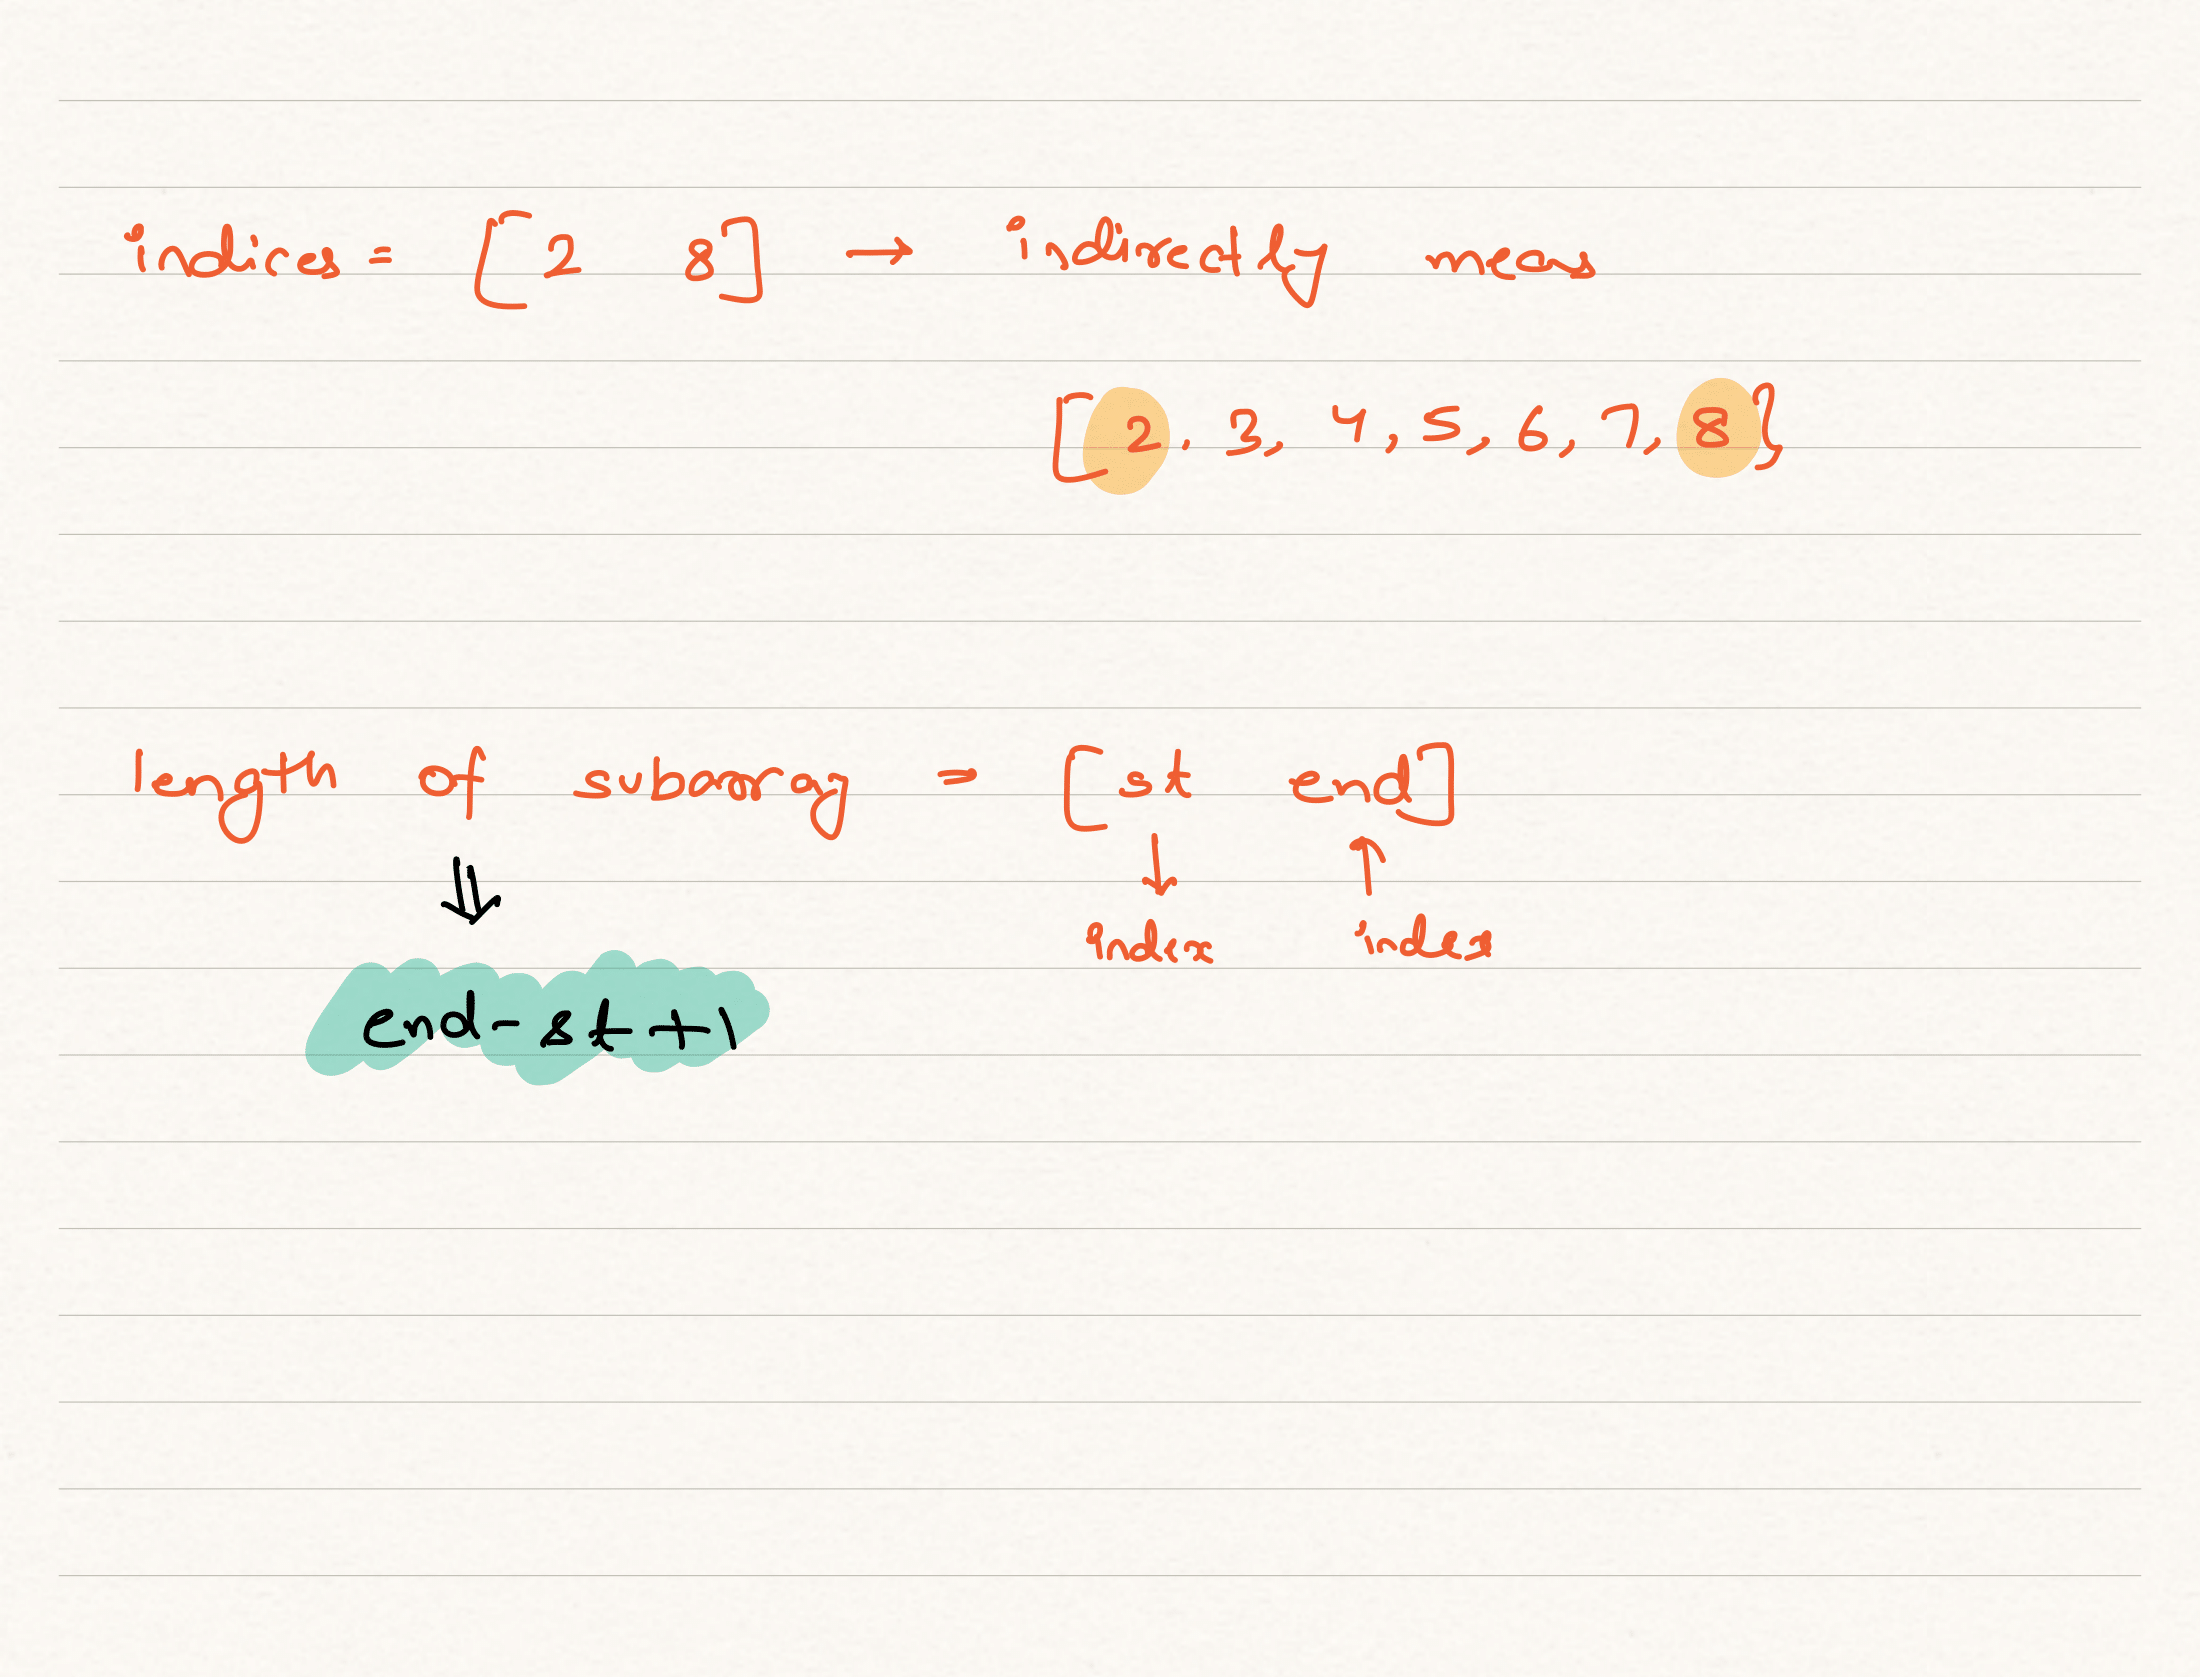 indices = [2 8] → indirectly means
[2, 3, 4, 5, 6, 7, 8}
length of subarray = [st end]
⇓ ↓ ↑
index index
end-st+1